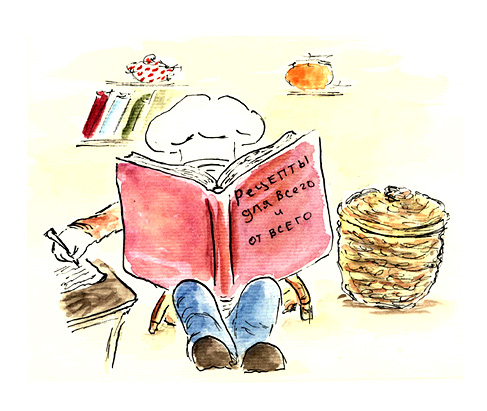 рецепты
для всего
и
от всего